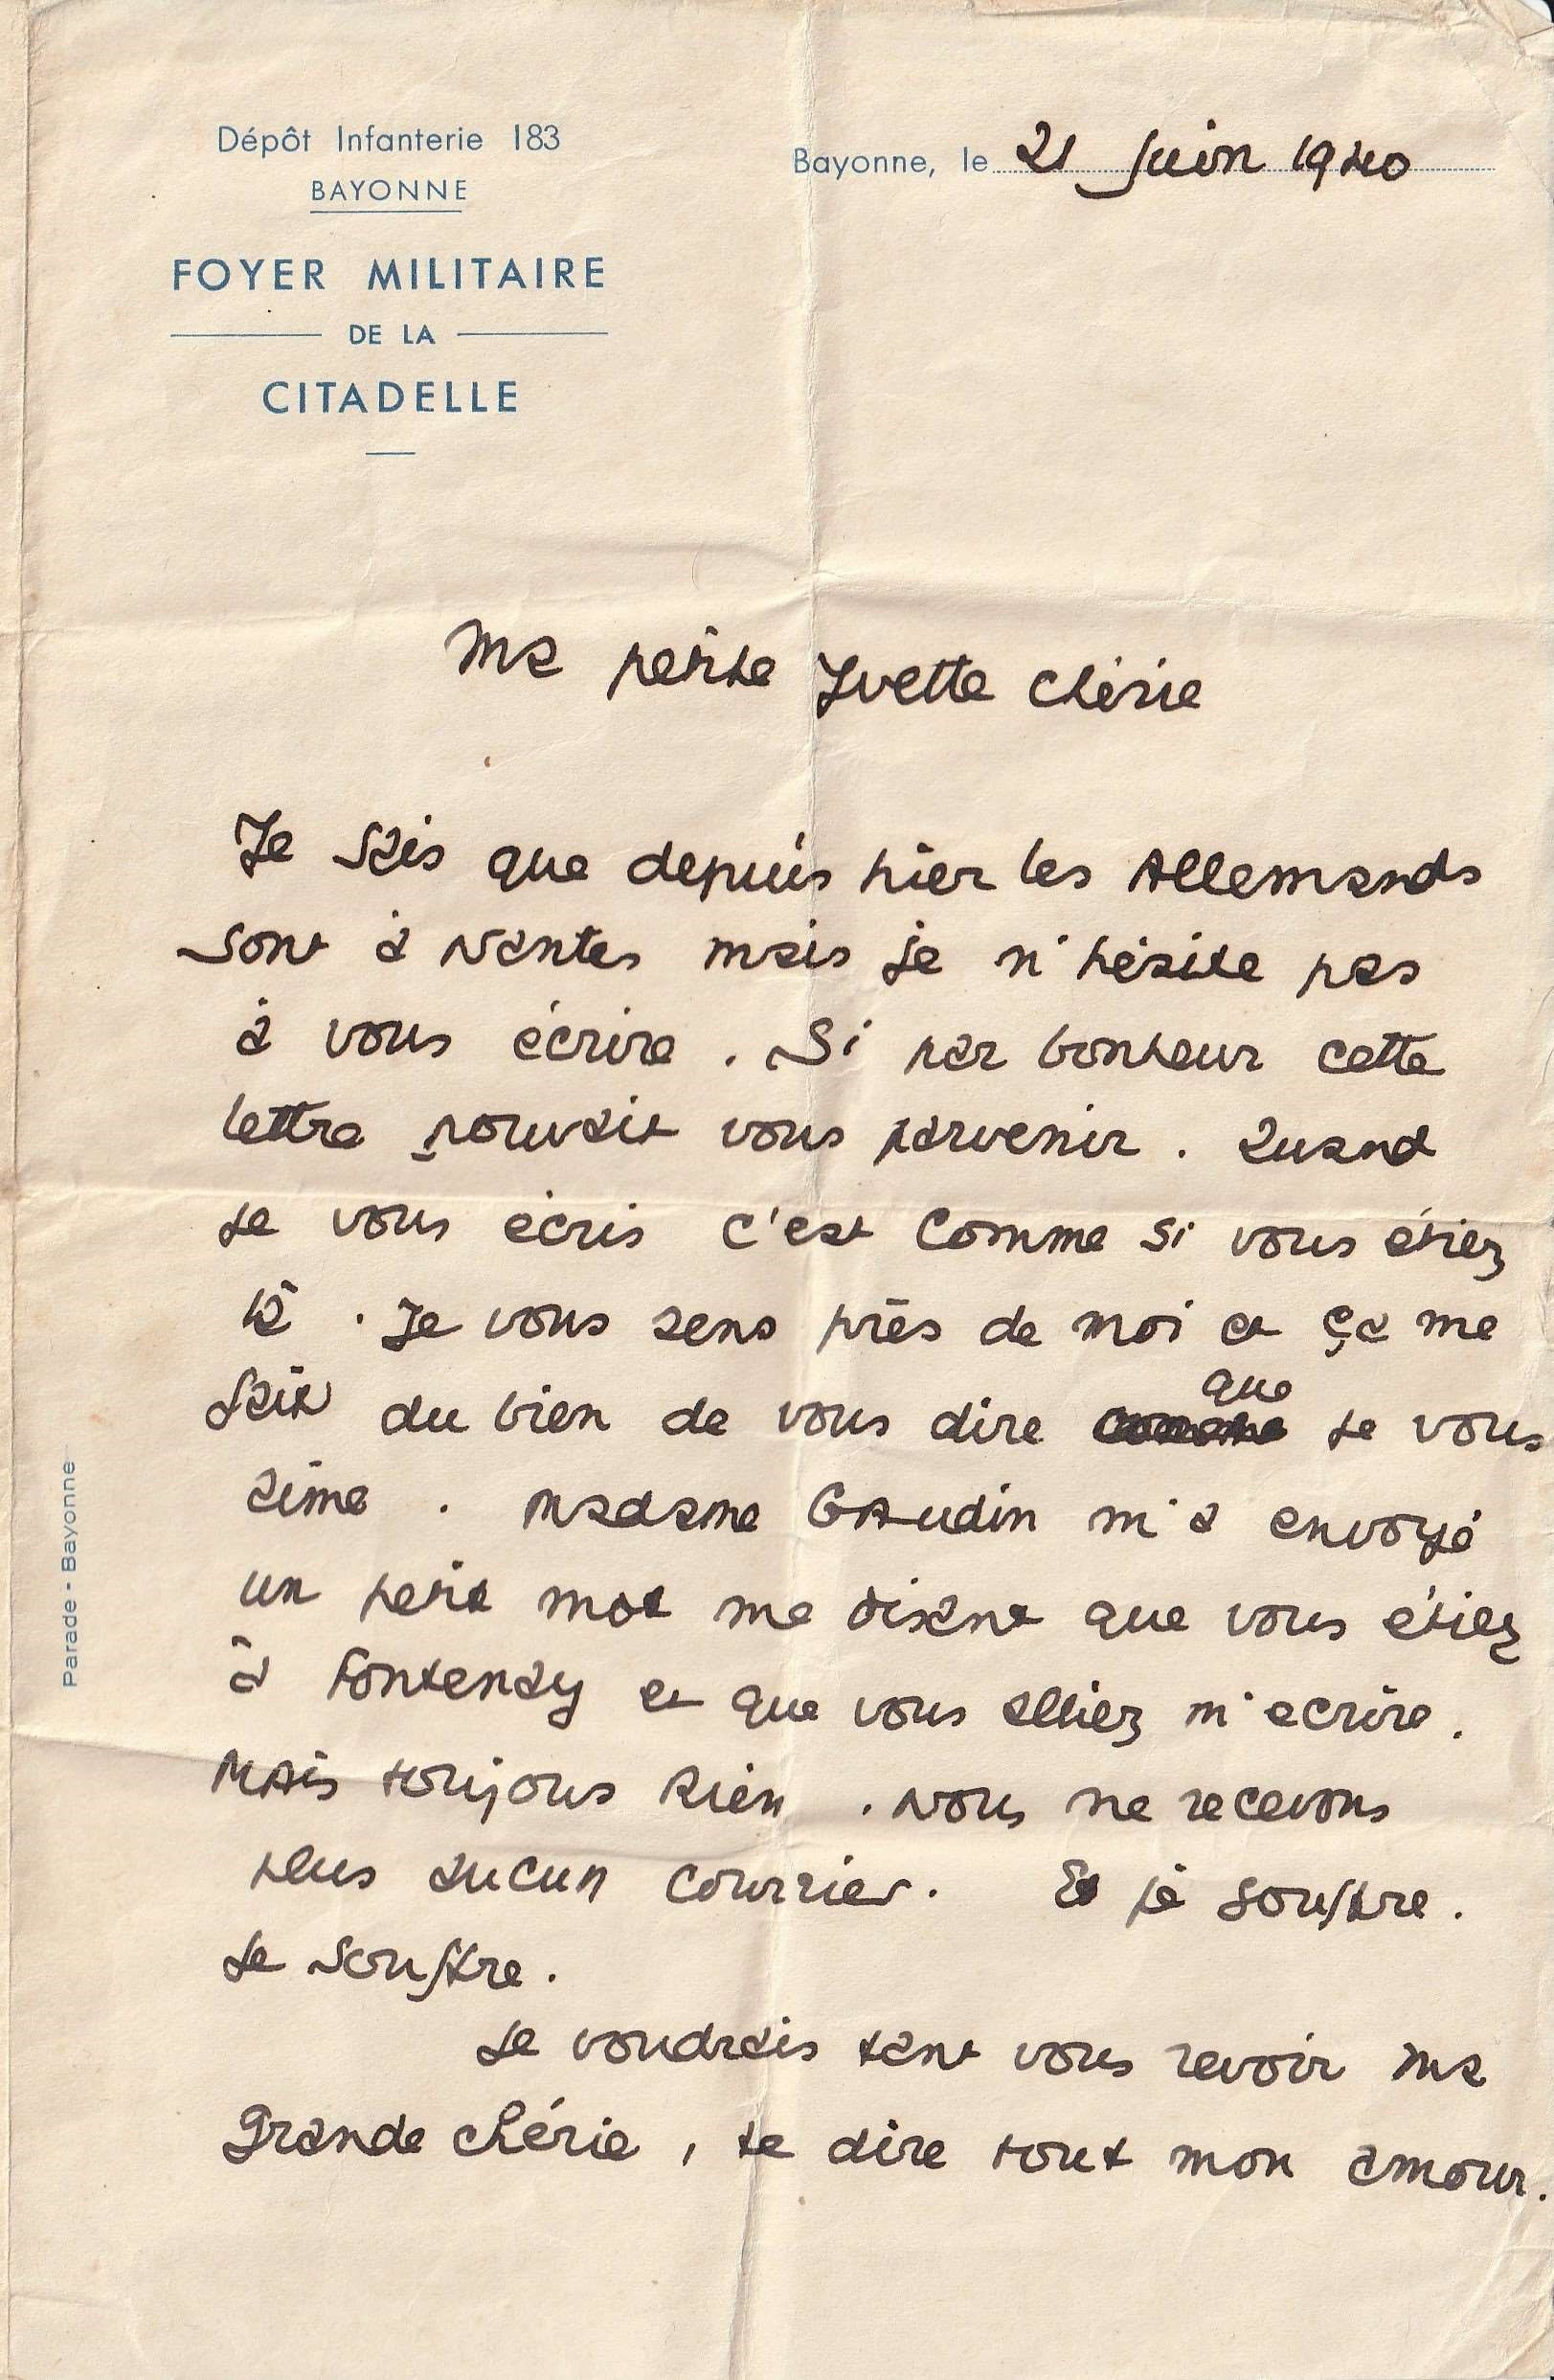 Dépôt Infanterie 183
BAYONNE
FOYER MILITAIRE
DE LA
CITADELLE
Bayonne, le 21 Juin 1940
Ma petite Yvette chérie
Je sais que depuis hier les Allemands
sont à Nantes mais je n'hésite pas
à vous écrire. Si par bonheur cette
lettre pouvait vous parvenir. Quand
je vous écris c'est comme si vous étiez
là. Je vous sens près de moi et ça me
fait du bien de vous dire que je vous
aime. Madame GAudin m'a envoyé
un petit mot me disant que vous étiez
à Fontenay et que vous alliez m'ecrire.
MAis toujours Rien. Nous ne recevons
plus aucun courrier. Et je souffre.
Je souffre.
Je voudrais tant vous revoir ma
grande chérie, te dire tout mon amour.
Parade - Bayonne